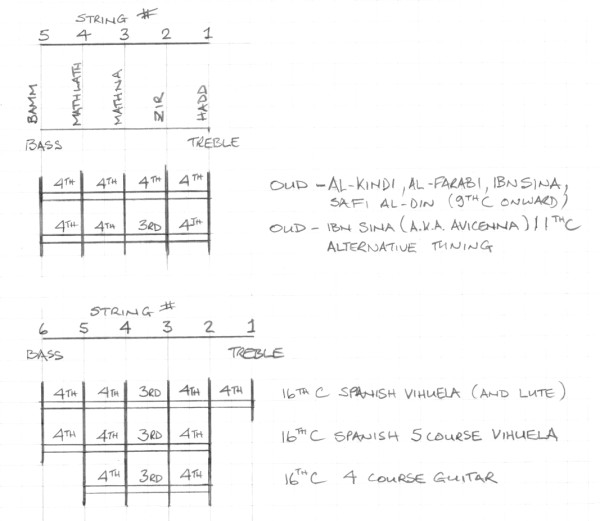 STRING #
5 4 3 2 1
BAMM MATHLATH MATHNA ZIR HADD
BASS TREBLE
4TH 4TH 4TH 4TH OUD - AL-KINDI, AL-FARABI, IBN SINA,
SAFI AL-DIN (9TH C ONWARD)
4TH 4TH 3RD 4TH OUD - IBN SINA (A.K.A. AVICENNA) 11TH C
ALTERNATIVE TUNING
STRING #
6 5 4 3 2 1
BASS TREBLE
4TH 4TH 3RD 4TH 4TH 16TH C SPANISH VIHUELA (AND LUTE)
4TH 4TH 3RD 4TH 16TH C SPANISH 5 COURSE VIHUELA
4TH 3RD 4TH 16TH C 4 COURSE GUITAR